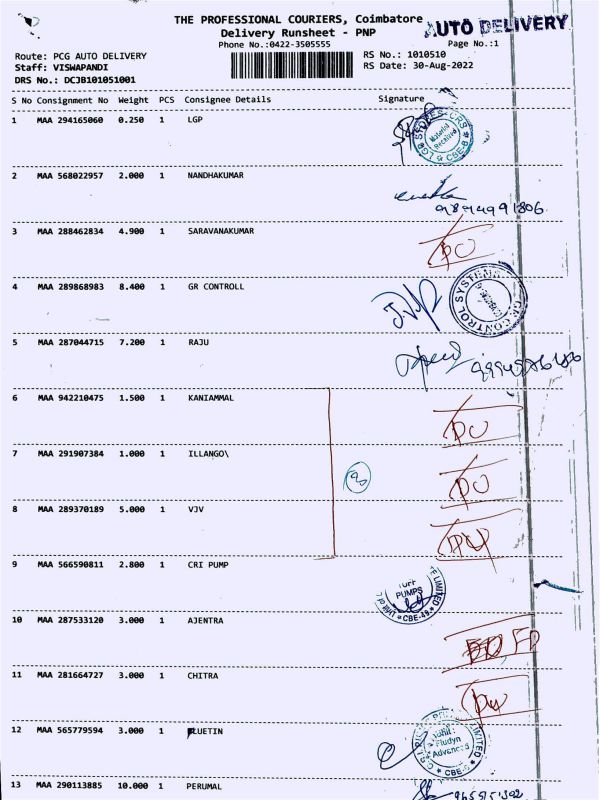 THE PROFESSIONAL COURIERS, Coimbatore
AUTO DELIVERY
Delivery Runsheet - PNP
Phone No.:0422-3505555
Page No.:1
Route: PCG AUTO DELIVERY
RS No.: 1010510
Staff: VISWAPANDI
RS Date: 30-Aug-2022
DRS No.: DCJB101051001
S No Consignment No Weight PCS Consignee Details Signature
1 MAA 294165060 0.250 1 LGP
Material
Received
CBE-6
2 MAA 568022957 2.000 1 NANDHAKUMAR
9894991806
3 MAA 288462834 4.900 1 SARAVANAKUMAR
4 MAA 289868983 8.400 1 GR CONTROLL
GR CONTROL SYSTEMS
5 MAA 287044715 7.200 1 RAJU
6 MAA 942210475 1.500 1 KANIAMMAL
7 MAA 291907384 1.000 1 ILLANGO\
8 MAA 289370189 5.000 1 VJV
9 MAA 566590811 2.800 1 CRI PUMP
PUMPS
LIMITED
CBE-49
10 MAA 287533120 3.000 1 AJENTRA
11 MAA 281664727 3.000 1 CHITRA
12 MAA 565779594 3.000 1 FLUETIN
Unit:
Fludyn
Advanced
LIMITED
CBE-6
13 MAA 290113885 10.000 1 PERUMAL